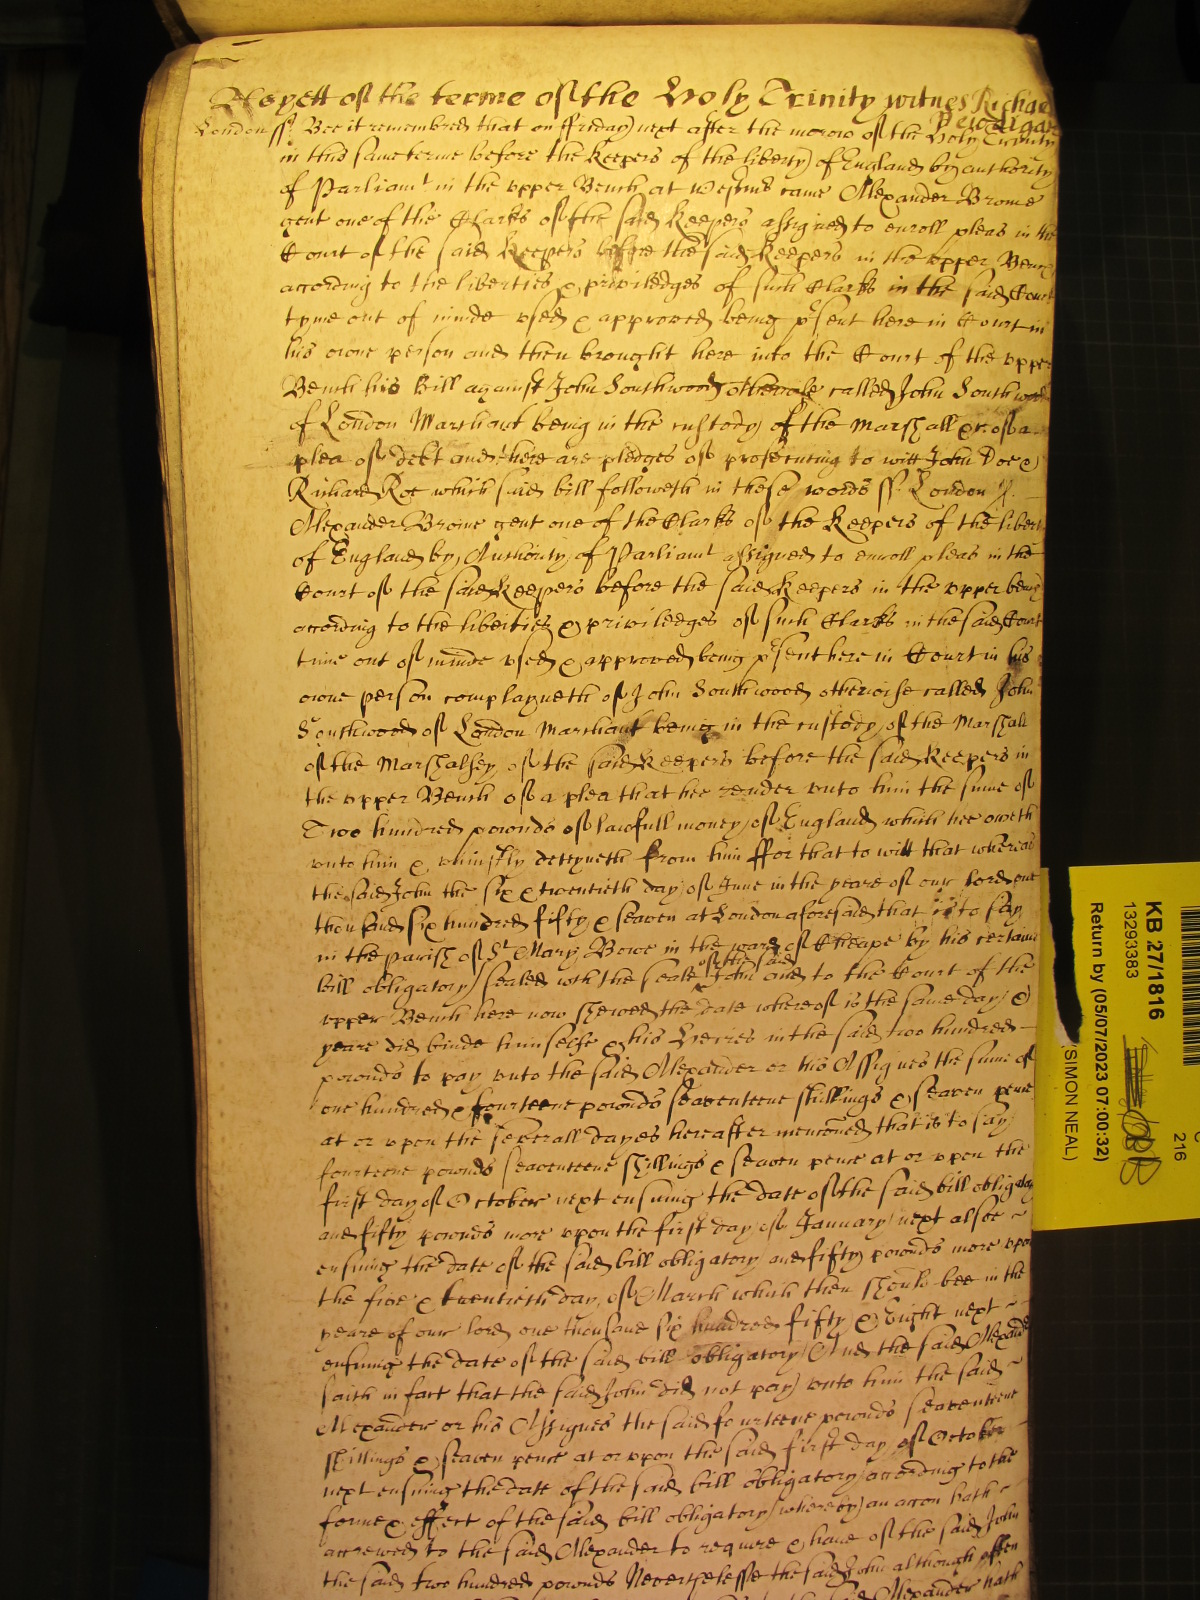 As yett of the terme of the Holy Trinity witnes Richae
London ss. Bee it remembred that on ffriday next after the morow of the Holy Trinity
in this same terme before the Keepers of the liberty of England by authority
of Parliamt in the vpper Bench at Westmr came Alexander Brome
gent one of the Clarks of the said Keepers assigned to enroll pleas in the
Court of the said Keepers before the said Keepers in the vpper Bench
according to the liberties & priviledges of such Clarks in the said Court
tyme out of minde vsed & approved being psent here in Court in
his owne person and then brought here into the Court of the vpper
Bench his Bill against John Southwood otherwise called John Southwood
of London Marchant being in the custody of the Marshall &c of a
plea of debt and there are pledges of prosecuting to witt John Doe &
Richard Roe which said bill followeth in these words ss. London ss.
Alexander Brome gent one of the Clarks of the Keepers of the libert
of England by Authority of Parliamt assigned to enroll pleas in the
Court of the said Keepers before the said Keepers in the vpper bench
according to the liberties & priviledges of such Clarks in the said Court
time out of minde vsed & approved being psent here in Court in his
owne person complayneth of John Southwood otherwise called John
Southwood of London Marchant being in the custody of the Marshall
of the Marshalsey of the said Keepers before the said Keepers in
the vpper Bench of a plea that hee render vnto him the sume of
Two hundred pownds of lawfull money of England which hee oweth
vnto him & vniustly deteyneth from him ffor that to witt that whereas
the said John the six & twentieth day of June in the yeare of our lord one
thousand six hundred fifty & seaven at London aforesaid that is to say
in the parish of St Mary Bowe in the ward of Cheape by his certaine
bill obligatory sealed with the seale of the said John and to the Court of the
vpper Bench here now shewed the date whereof is the same day &
yeare did binde himselfe & his Heires in the said two hundred
pownds to pay vnto the said Alexander or his Assignes the sume of
one hundred & fourteene pownds seaventeene shillings & seaven pence
at or vpon the severall dayes hereafter menconed that is to say
fourteene pownds seaventeene shillings & seaven pence at or vpon the
first day of October next ensuing the date of the said bill obligatory
and fifty pownds more vpon the first day of January next alsoe
ensuing the date of the said bill obligatory and fifty pownds more vpon
the five & twentieth day of March which then should bee in the
yeare of our lord one thousand six hundred fifty & Eight next
ensuing the date of the said bill obligatory And the said Alexander
saith in fact that the said John did not pay vnto him the said
Alexander or his Assignes the said fourteene pownds seaventeene
shillings & seaven pence at or vpon the said first day of October
next ensuing the date of the said bill obligatory according to the
forme & effect of the said bill obligatory whereby an accon hath
accrewed to the said Alexander to require & have of the said John
the said two hundred pownds Neverthelesse the said John although often
Alexander hath
KB 27/1816
13293383
Return by (05/07/2023 07:00:32)
(SIMON NEAL)
216